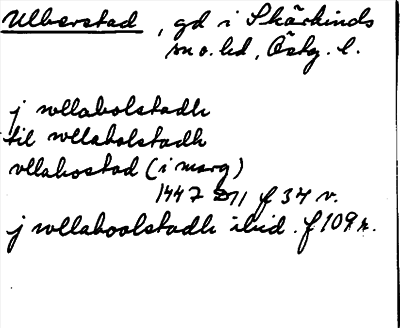 Ulberstad, gd i Skärkinds
sn o. hd, Östg. l.
j wllabolstadh
til wllabolstadh
vllabostad (i marg)
1447 D11 f 34 v.
j wllaboolstadh ibid. f 109 r.